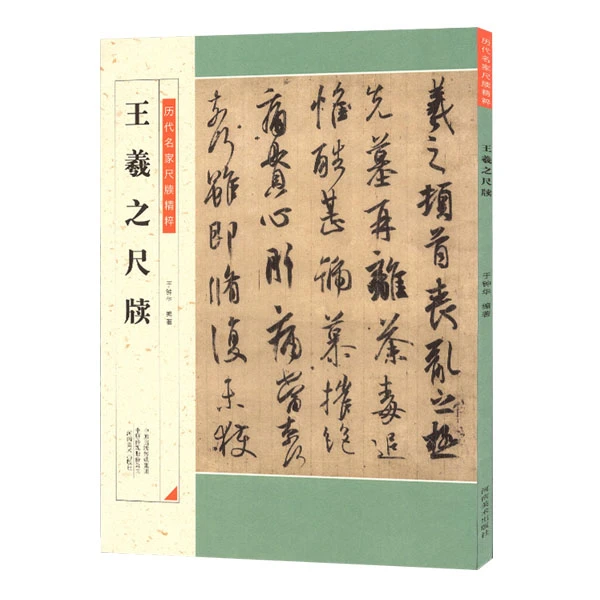 历代名家尺牍精粹
王羲之尺牍
于钟华 编著
中原出版传媒集团
中原传媒股份公司
河南美术出版社
羲之顿首丧乱之极
先墓再离荼毒追
惟酷甚號慕摧绝
痛贯心肝痛当奈
奈何虽即脩复未获
历代名家尺牍精粹
王羲之尺牍
于钟华 编著
河南美术出版社